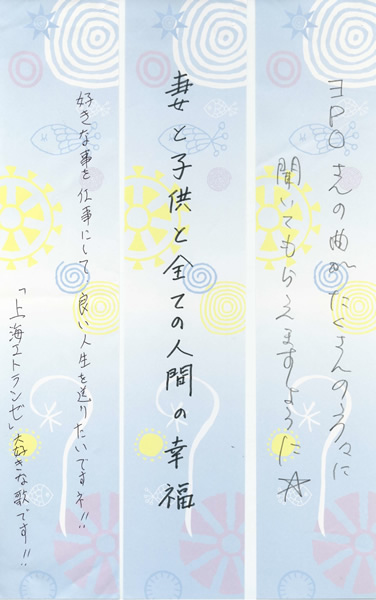 ヨPO。さんの曲がたくさんの方々に
聞いてもらえますように☆
妻と子供と全ての人間の幸福
好きな事を仕事にして良い人生を送りたいですネ!!
「上海エトランゼ」大好きな歌です!!